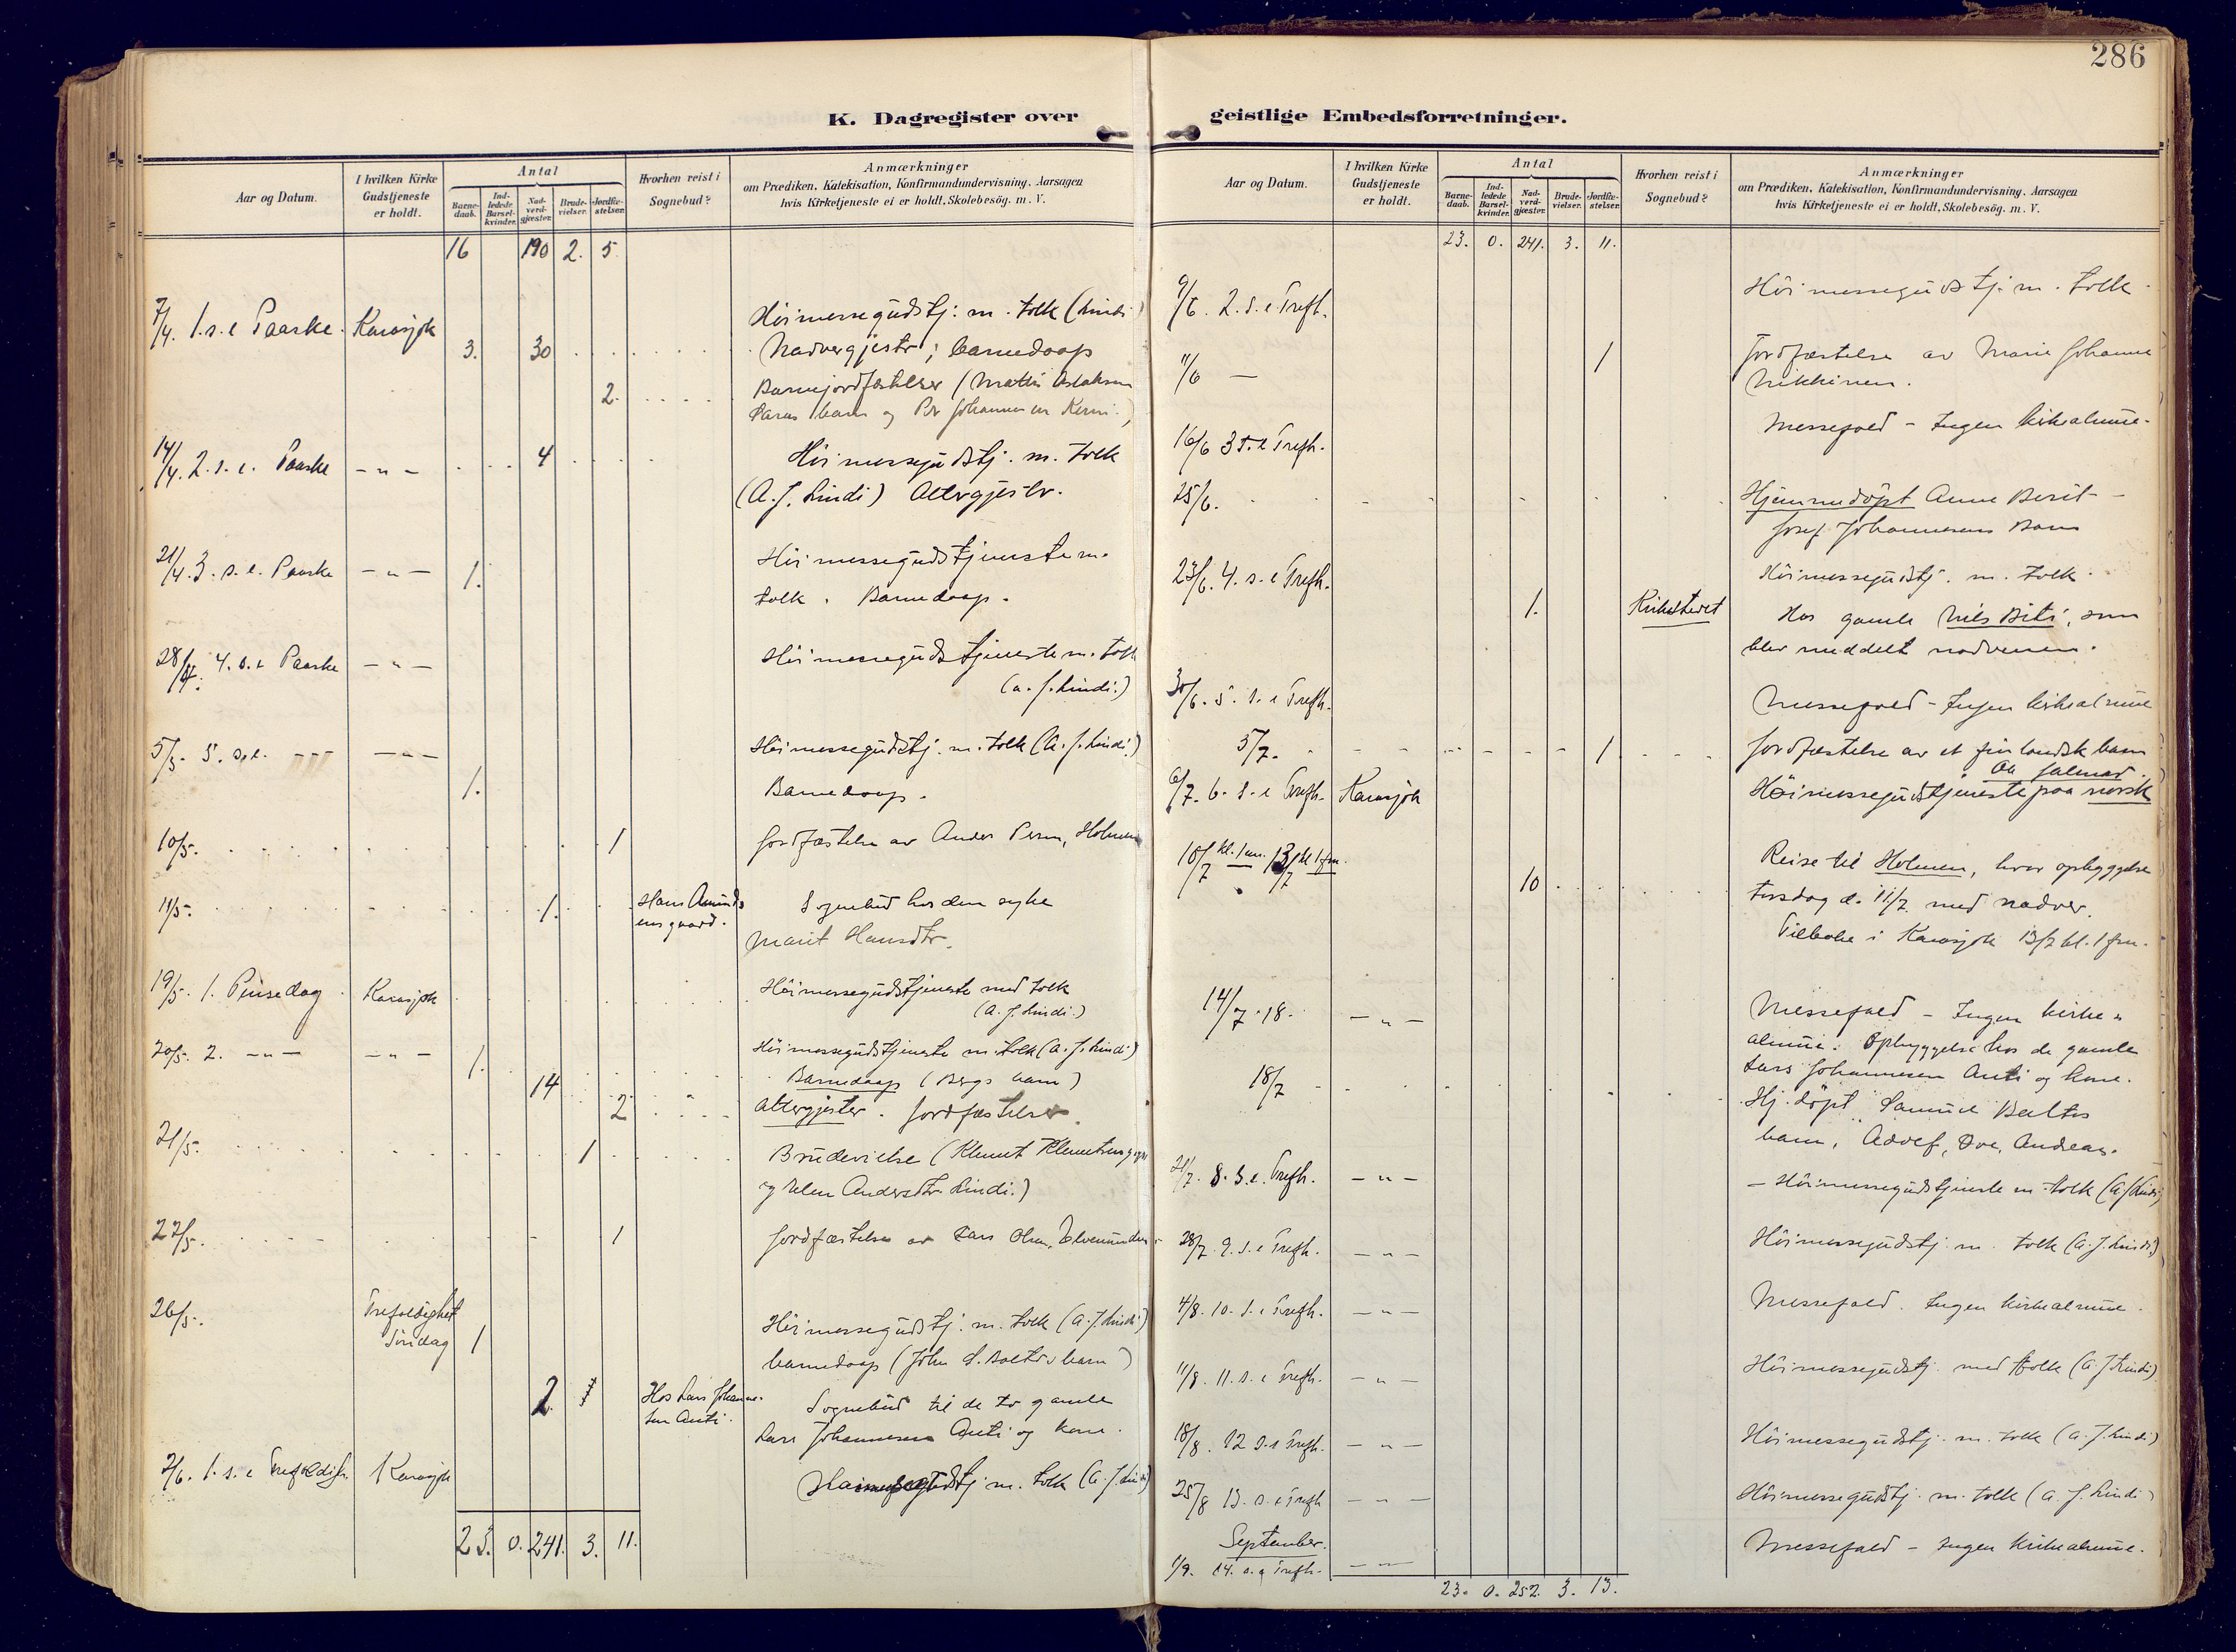 286
K. Dagregister over geistlige Embedsforretninger.
Aar og Datum.
I hvilken Kirke Gudstjeneste er holdt.
Antal
Barne-daab.
Ind-ledede Barsel-kvinder.
Nad-verd-gjæster.
Brude-vielser.
Jordfæ-stelser.
Hvorhen reist i Sognebud?
Anmærkninger
om Prædiken, Katekisation, Konfirmandundervisning, Aarsagen
hvis Kirketjeneste ei er holdt, Skolebesög. m. V.
16 190 2. 5.
7/4. 1. s. e Paaske. Karasjok Höimessegudstj. m. tolk (Lindi)
3. 30 Nadvergjester; barnedaap
2. Barnejordfæstelser (Mathis Aslaksen
barn og Per Johannesen
14/4. 2. s. e. Paaske — „ — 4 Höimessegudstj. m. tolk
(A. J. Lindi) Altergjester.
21/4. 3. s. e. Paaske — „ — 1. Höimessegudstjeneste m.
tolk. Barnedaap.
28/4. 4. s. e Paaske — „ — Höimessegudstjeneste m. tolk
(A. J. Lindi.)
5/5. 5. s. e. — „ — Höimessegudstj. m. tolk (A. J. Lindi.)
1. Barnedaap.
10/5. 1 Jordfæstelse av Anders Persen, Holmen
11/5. 1. Hans Amunds
ens gaard. Sognebud hos den syke
Marit Hansdtr.
19/5. 1. Pinsedag Karasjok Höimessegudstjeneste med tolk
(A. J. Lindi.)
20/5. 2. — „ — — „ — 1. Höimessegudstjeneste m. tolk (A. J. Lindi)
14 Barnedaap (Bergs barn)
2 Altergjester. Jordfæstelser
21/5. 1 Brudevielse (Klemet Klemetsen
og Elen Andersdtr. Lindi.)
22/5. 1 Jordfæstelse av Lars Olsen, Elvemunden
26/5. Trefoldighet
Söndag 1 Höimessegudstj. m. tolk (A. J. Lindi)
barnedaap (John S. Balto's barn)
2. Hos Lars Johanne-
sen Anti. Sognebud til de to gamle
Lars Johannesen Anti og kone.
2/6. 1. s. e Trefoldigh. Karasjok Höimessegudstj m. tolk (A. J. Lindi)
23. 0. 241. 3. 11.
Aar og Datum.
I hvilken Kirke Gudstjeneste er holdt.
Antal
Barne-daab.
Ind-ledede Barsel-kvinder.
Nad-verd-gjæster.
Brude-vielser.
Jordfæ-stelser.
Hvorhen reist i Sognebud?
Anmærkninger
om Prædiken, Katekisation, Konfirmandundervisning, Aarsagen
hvis Kirketjeneste ei er holdt, Skolebesög. m. V.
23. 0. 241. 3. 11.
9/6. 2. s. e. Trefh. Höimessegudstj. m. tolk.
11/6 — 1 Jordfæstelse av Marie Johanne
Nikkinen.
16/6 3 s. e Trefh. Messefald - Ingen kirkealmue.
25/6. Hjemmedöpt Anne Berit -
Josef Johannesens Barn
23/6. 4. s. e Trefh. Höimessegudstj. m. tolk.
1. Kirkestedet Hos gamle Nils Biti, som
blev meddelt nadveren.
30/6. 5. s. e Trefh. Messefald - Ingen kirkealmue
5/7. 1 Jordfæstelse av et finlandsk barn
6/7. 6. s. e Trefh. Karasjok Höimessegudstjeneste paa norsk
10/7 kl. 1 em. 13/7 kl 1 fm. Reise til Holmen, hvor opbyggelse
10 torsdag d. 11/7 med nadver.
Tilbake i Karasjok 13/7 kl. 1 fm.
14/7. 18. — „ — Messefald - Ingen kirke-
almue. Opbyggelse hos de gamle
Lars Johannesen Anti og kone.
18/7 Hj. döpt Samuel Baltos
barn, Adolf, Ove, Andreas.
21/7. 8. s. e. Trefh. — „ — - Höimessegudstjeneste m. tolk (A. J. Lindi)
28/7. 9. s. e Trefh. — „ — Höimessegudstj. m tolk (A. J. Lindi)
4/8. 10. s. e Trefh. — „ — Messefald. Ingen kirkealmue.
11/8. 11. s. e Trefh. — „ — Höimessegudstj. med tolk (A. J. Lindi)
18/8. 12 s. e Trefh. — „ — Höimessegudstj. m. tolk (A. J. Lindi)
25/8 13. s. e Trefh — „ — Höimessegudstj. m. tolk (A. J. Lindi)
September.
1/9. 14. s. e Trefh. — „ — Messefald - Ingen kirkealmue.
23. 0. 252. 3. 13.